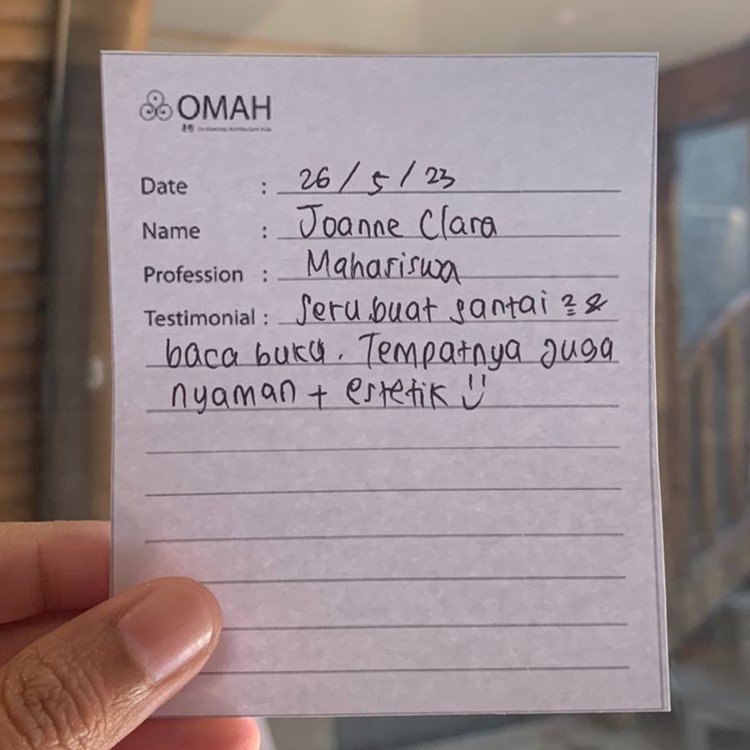 OMAH
Date : 26/5/23
Name : Joanne Clara
Profession : Mahasiswa
Testimonial : Seru buat santai 2 &
baca buku. Tempatnya juga
nyaman + estetik